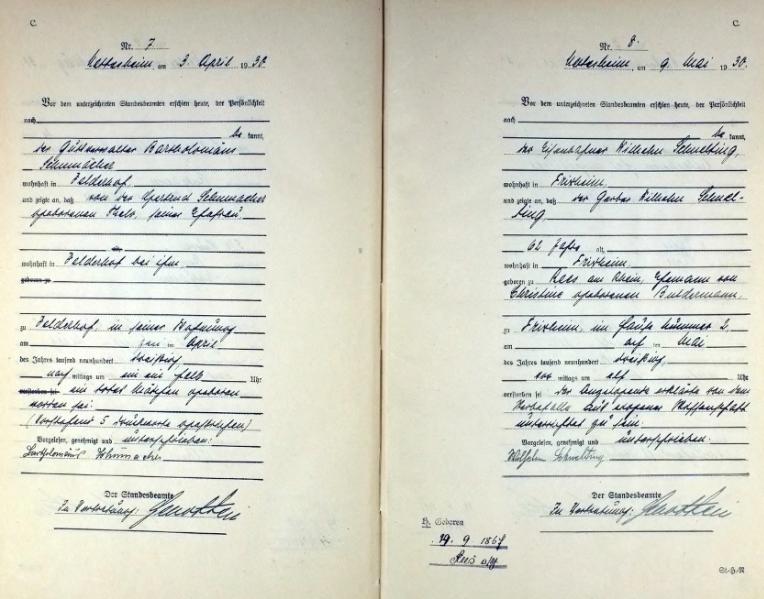 C.
Nr. 7
am 3. April 1930
Vor dem unterzeichneten Standesbeamten erschien heute, der Persönlichkeit
nach
be kannt,
der Gutsverwalter Bartholomäus
Schumacher
wohnhaft in Felderhof
und zeigte an, daß von der Gertrud Schumacher
geborenen seiner Ehefrau
wohnhaft in Felderhof bei ihm
geboren zu
zu Felderhof in seiner Wohnung
am zwei ten April
des Jahres tausend neunhundert dreißig
nach mittags um ein ein halb Uhr
verstorben sei: ein totes Mädchen geboren
worden sei.
(Vorstehend 5 Druckworte gestrichen)
Vorgelesen, genehmigt und unterschrieben.
Bartholomäus Schumacher
Der Standesbeamte
In Vertretung:
C.
Nr. 8.
am 9. Mai 1930.
Vor dem unterzeichneten Standesbeamten erschien heute, der Persönlichkeit
nach
be kannt,
der Eisenbahner Wilhelm Schmelting,
wohnhaft in Frixheim
und zeigte an, daß der Gerber Wilhelm Schmel-
ting
62 Jahre alt,
wohnhaft in Frixheim
geboren zu Rees am Rhein, Ehemann von
Christine geborenen
zu Frixheim im Hause Nummer 2,
am ten Mai
des Jahres tausend neunhundert dreißig
vor mittags um elf Uhr
verstorben sei. Der Angezeigende erklärte von dem
Sterbefalle aus eigener Wissenschaft
unterrichtet zu sein.
Vorgelesen, genehmigt und unterschrieben.
Wilhelm Schmelting
Der Standesbeamte
In Vertretung:
H. Geboren
9. 1867
Rees
St.H.R